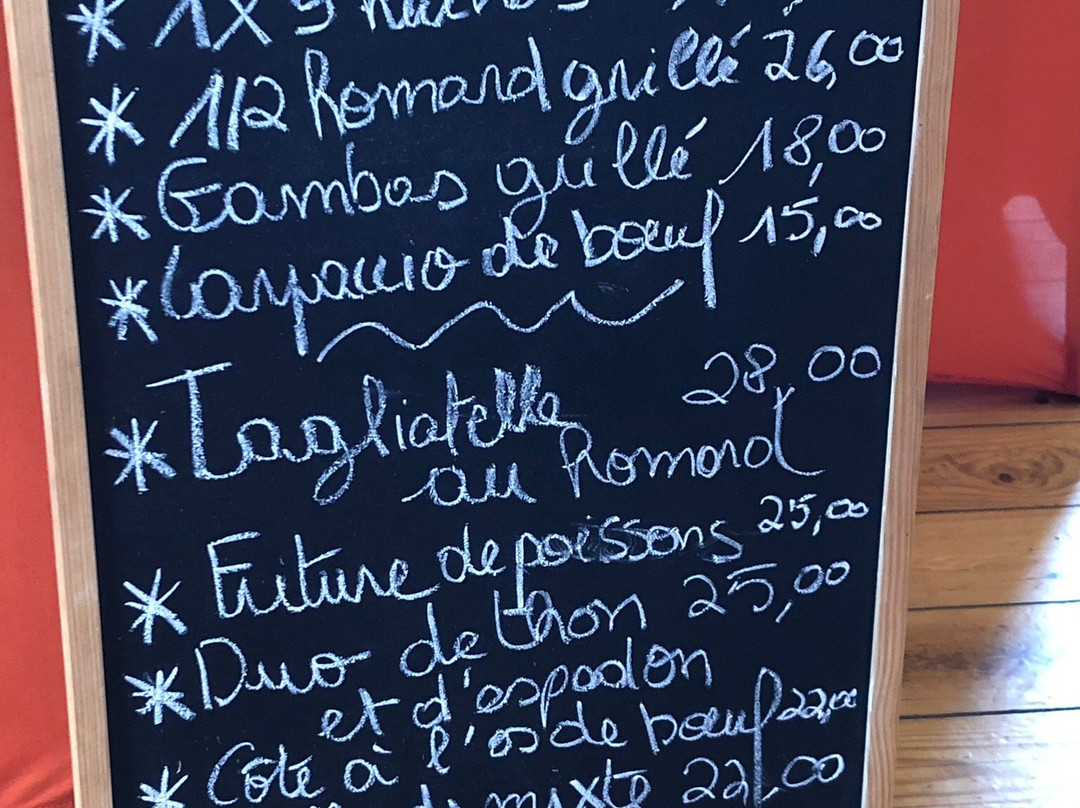 * 1x 9 huitres
* 1/2 homard grillé 26,00
* Gambas grillé 18,00
* Carpaccio de boeuf 15,00
* Tagliatelle 28,00
au homard
* Friture de poissons 25,00
* Duo de thon 25,00
et d'espadon
* Côte à l'os de boeuf 22,00
* mixte 22,00